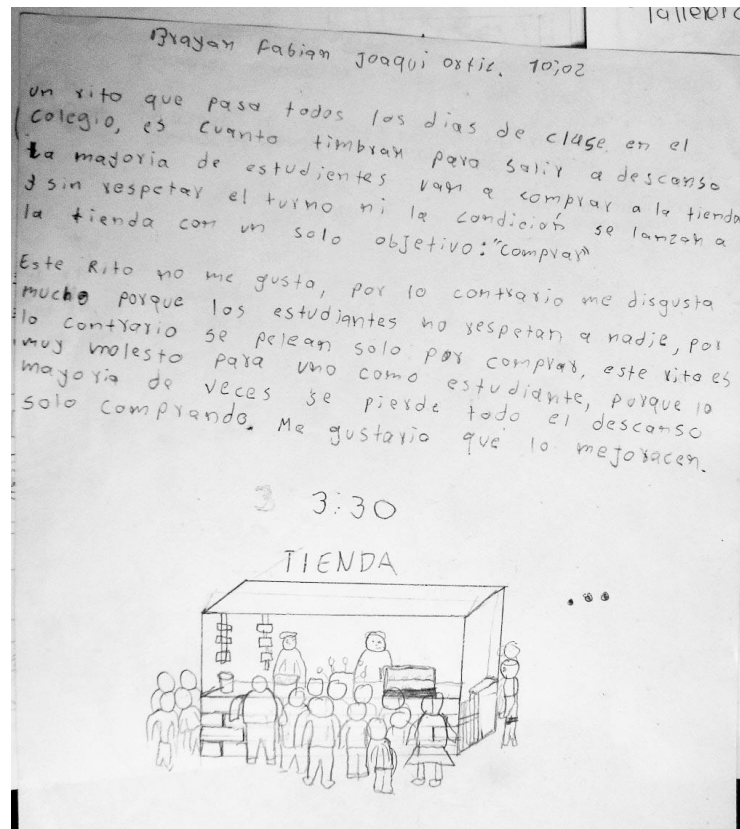 Tallerpro
Brayan Fabian Joaqui ortic. 10;02
un rito que pasa todos los dias de clase en el
colegio, es cuanto timbran para salir a descanso
La mayoria de estudientes van a comprar a la tienda
y sin respetar el turno ni la condición se lanzan a
la tienda con un solo objetivo: "comprar"
Este Rito no me gusta, por lo contrario me disgusta
mucho porque los estudiantes no respetan a nadie, por
lo contrario se pelean solo por comprar, este rito es
muy molesto para uno como estudiante, porque lo
mayoria de veces se pierde todo el descanso
solo comprando. Me gustaria que lo mejoracen.
3 3:30
TIENDA